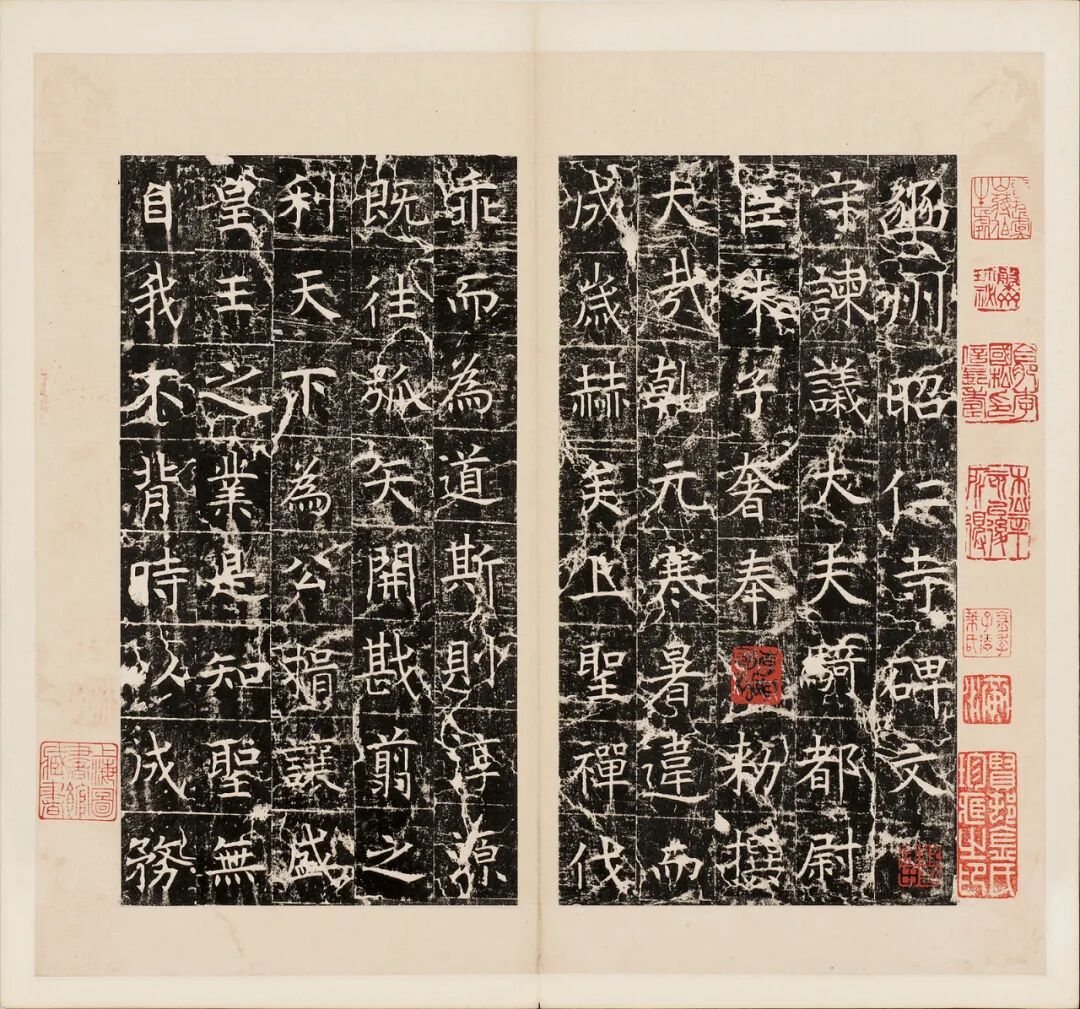 豳州昭仁寺碑文
守諫議大夫騎都尉
臣朱子奢奉勑撰
大哉乾元寒暑違而
成歲赫矣上聖禪伐
乖而為道斯則淳源
既往弧矢開戡翦之
利天下為公揖讓盛
皇王之業是知聖無
自我不背時以成務
上海圖書館藏書